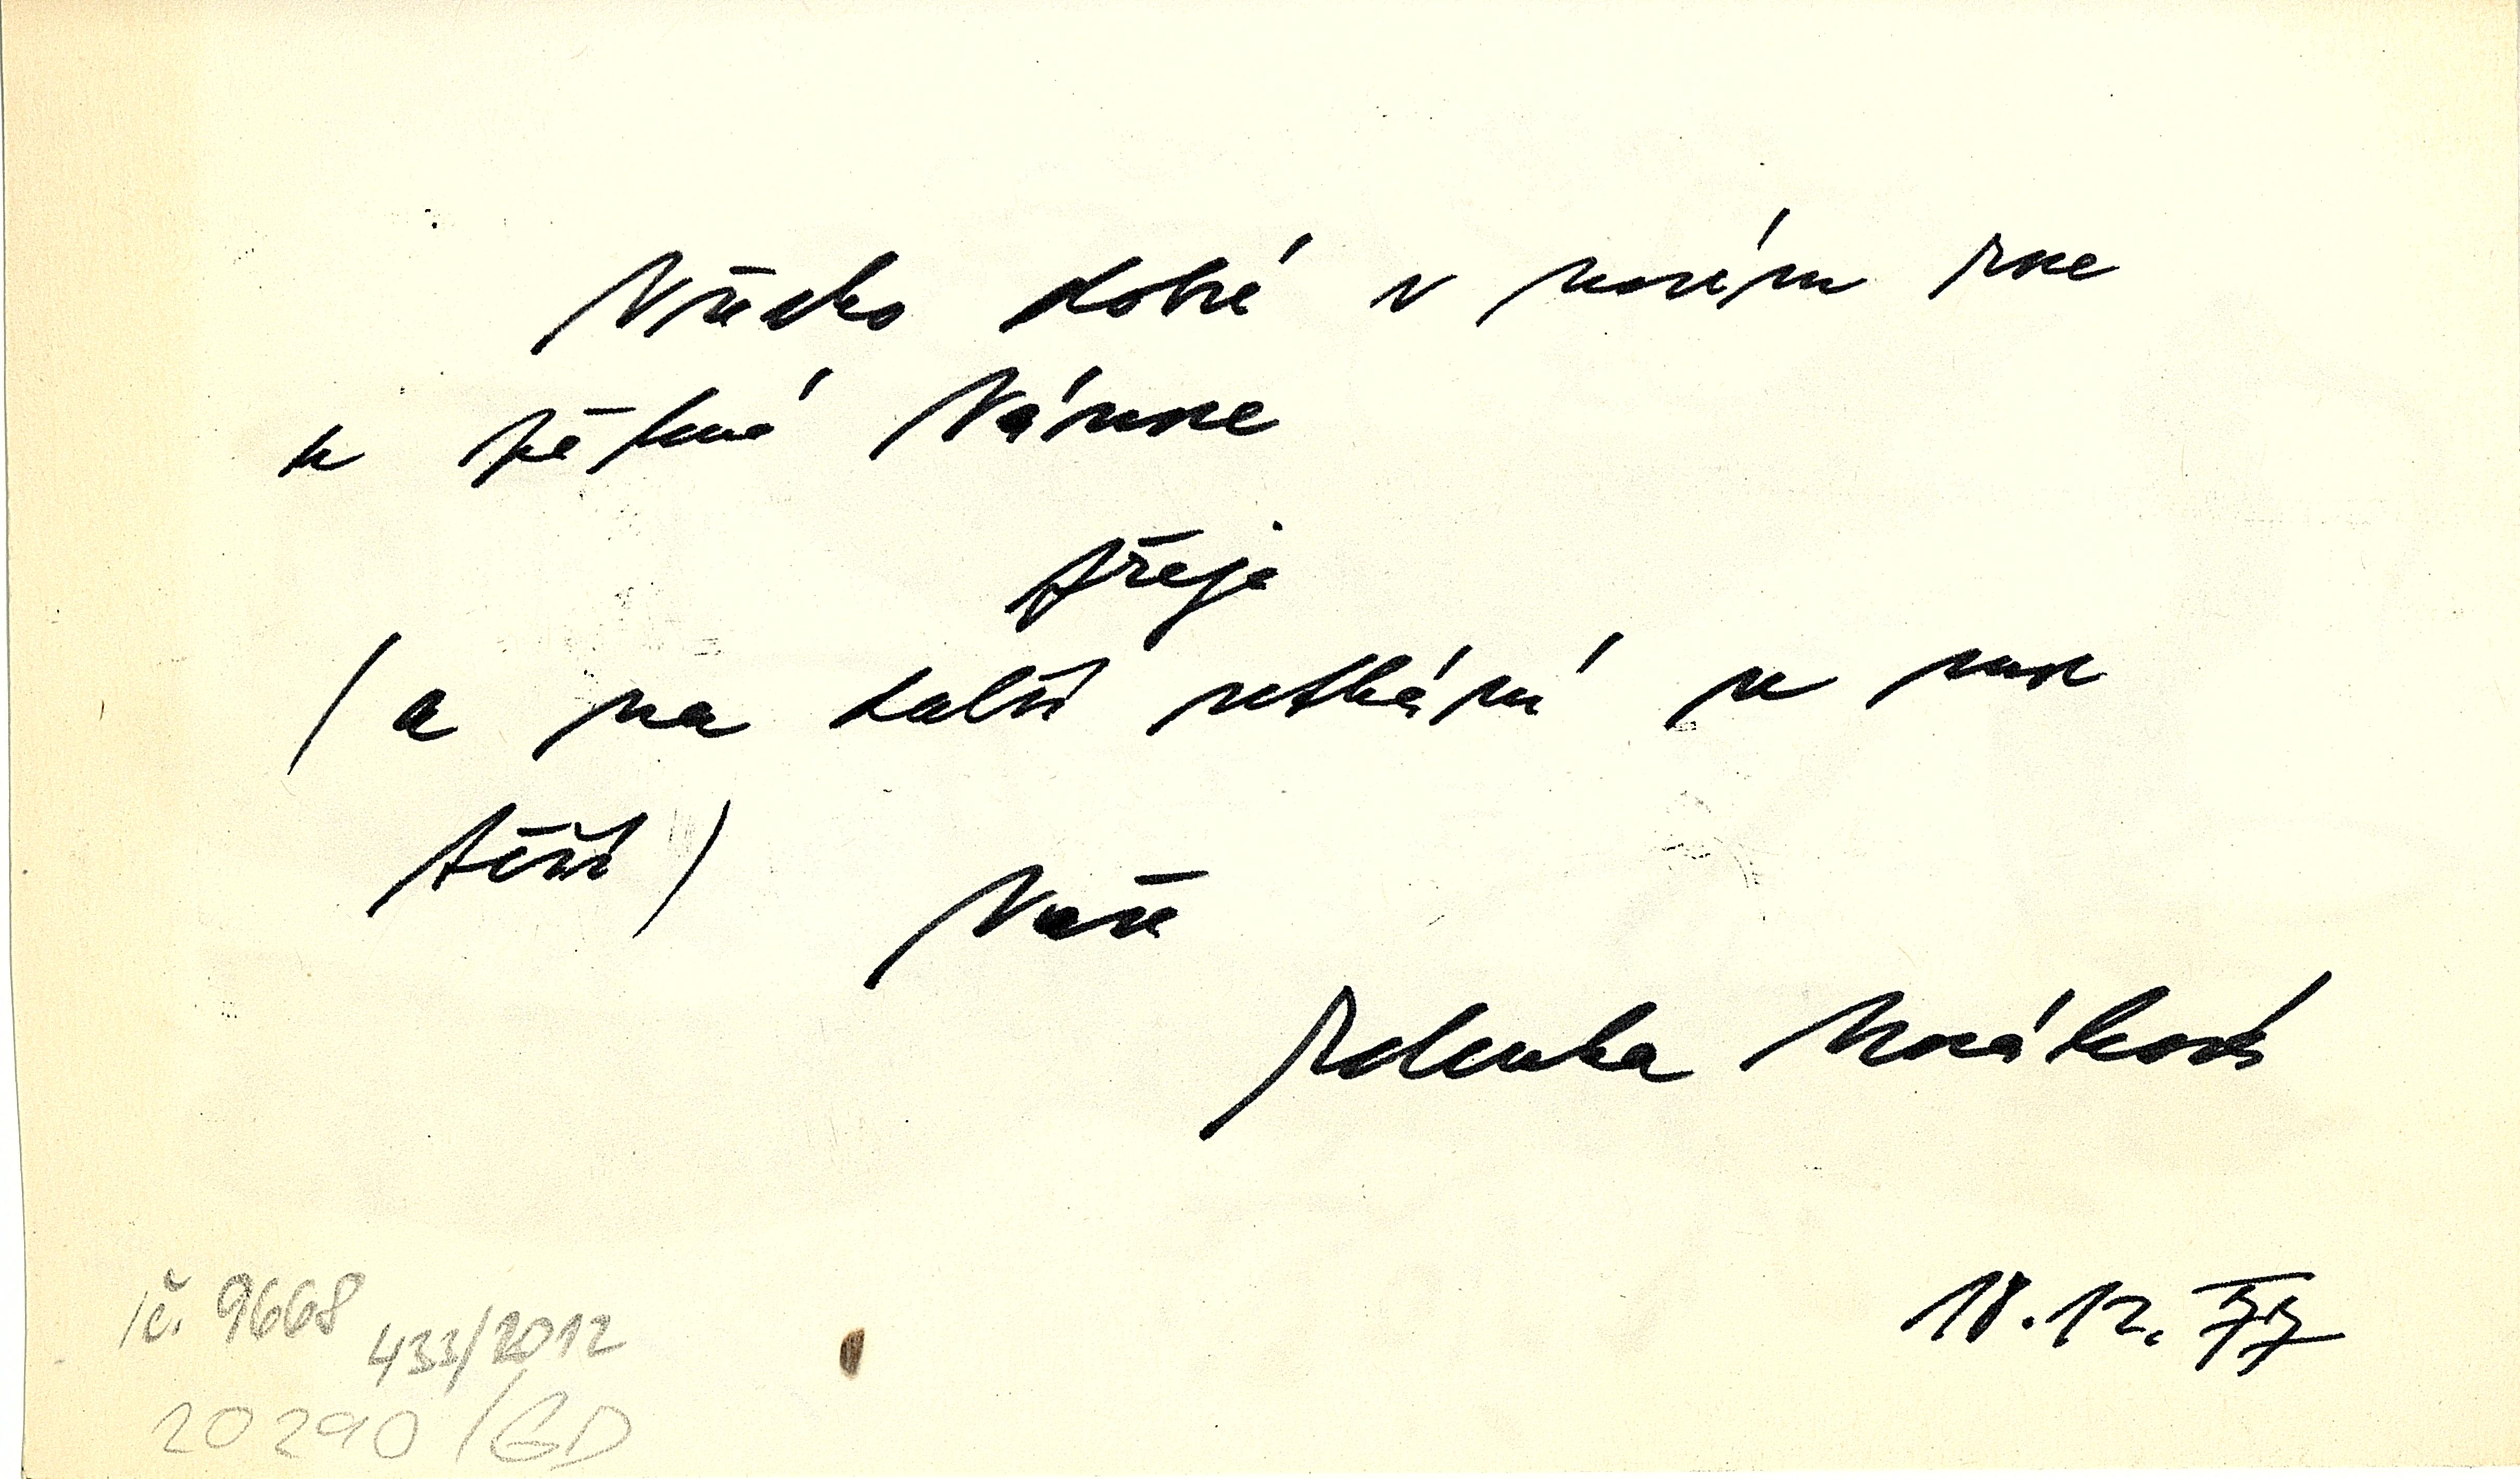 Všecko dobré v novém roce
a pěkné Vánoce
přeje
(a na další setkání se moc
těší) Vaše
Nováková
18.12.77
ič. 9668
433/2012
20290/GD